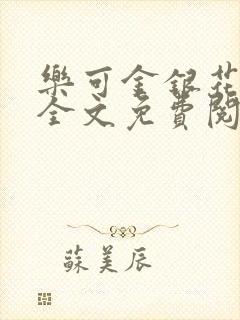 樂可金銀花
全文免費閱
蘇美辰